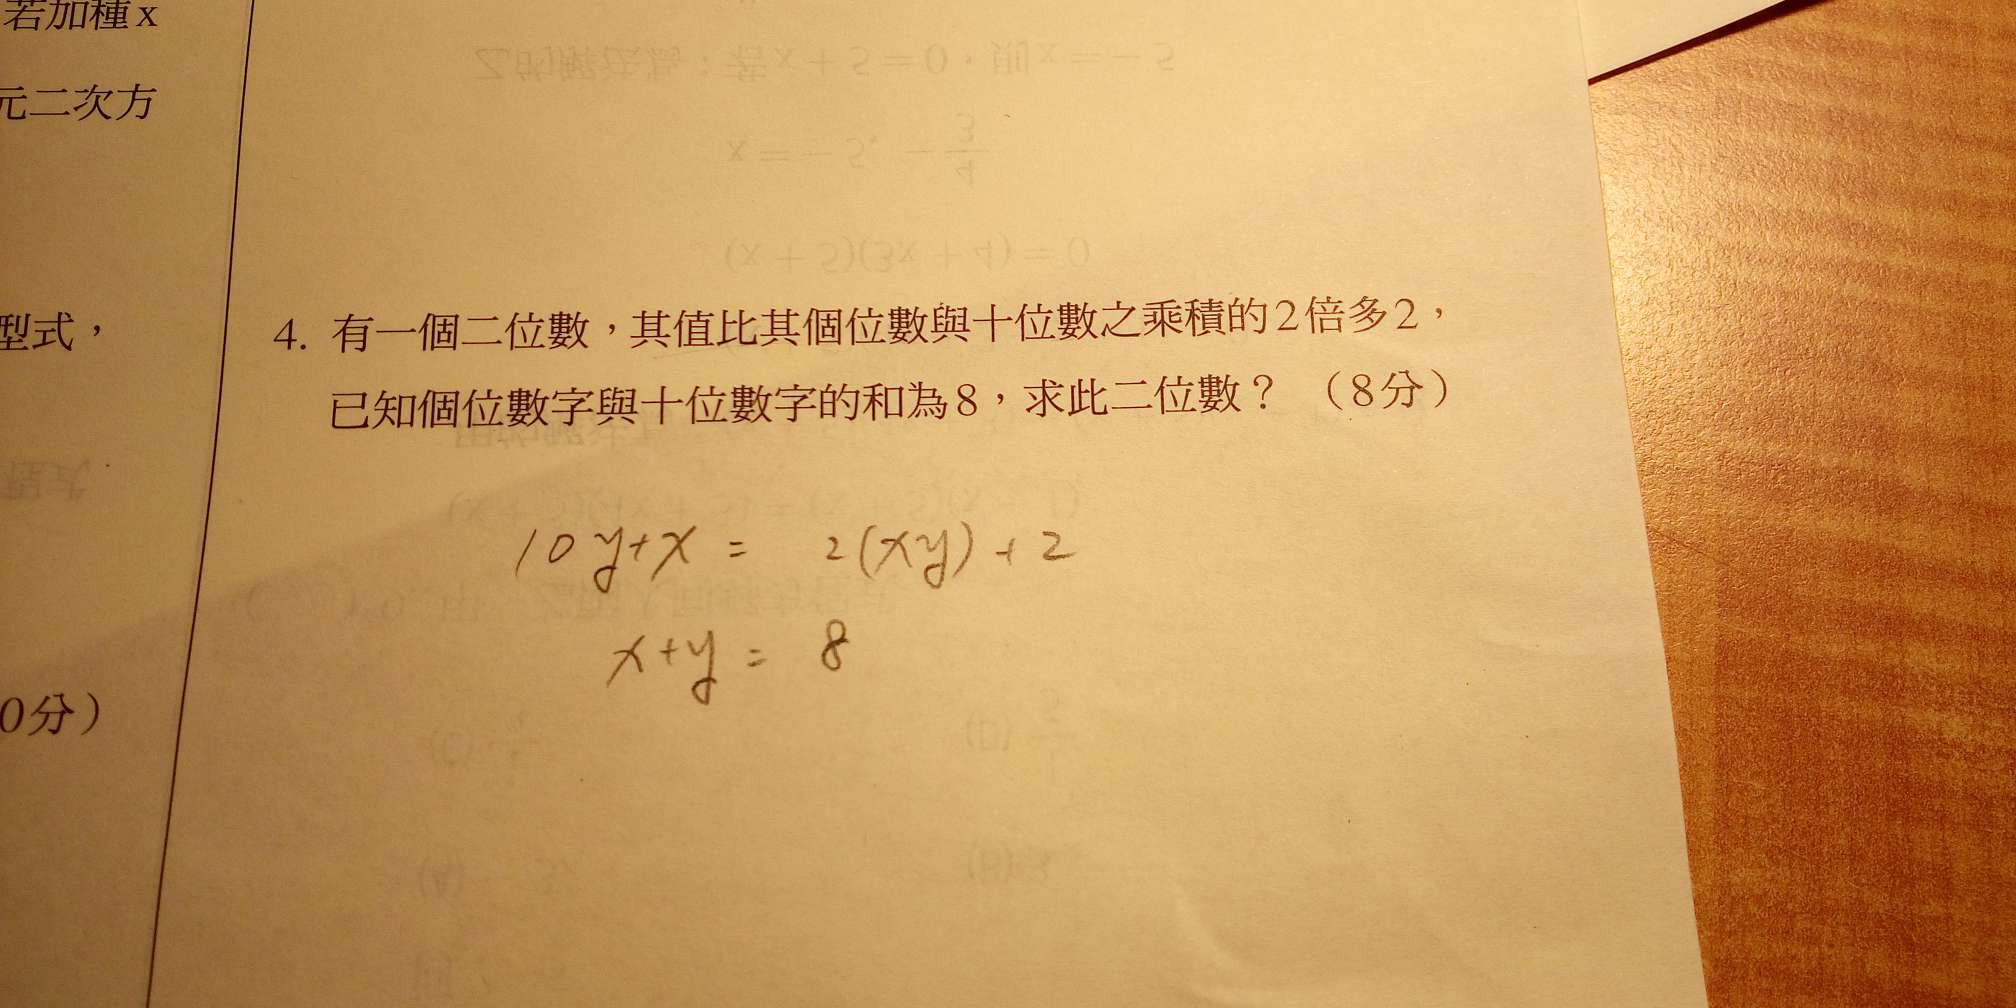 若加種x
元二次方
型式，
0分）
4. 有一個二位數，其值比其個位數與十位數之乘積的2倍多2，
已知個位數字與十位數字的和為8，求此二位數？（8分）
10y+x = 2(xy)+2
x+y = 8